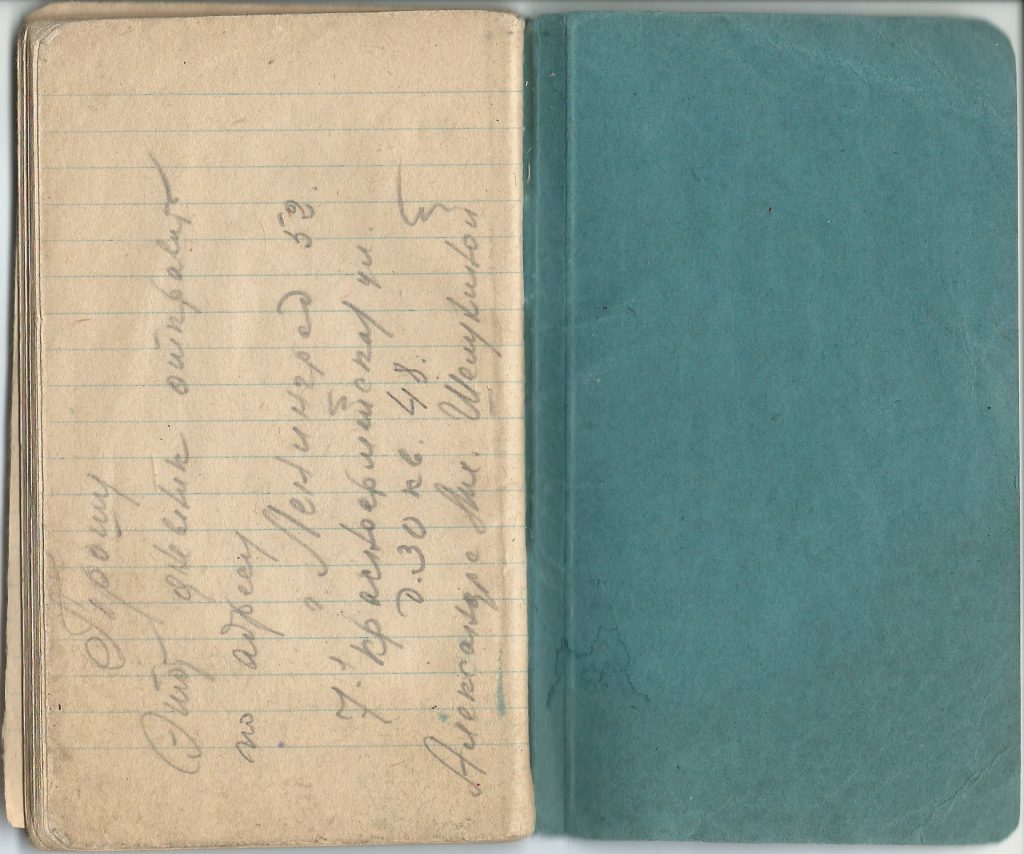 Прошу
Этот дневник отправить
по адресу
г Ленинград 52.
7. Красноармейская ул.
д. 30 кв. 48.
Александре Мих. Шелукиной